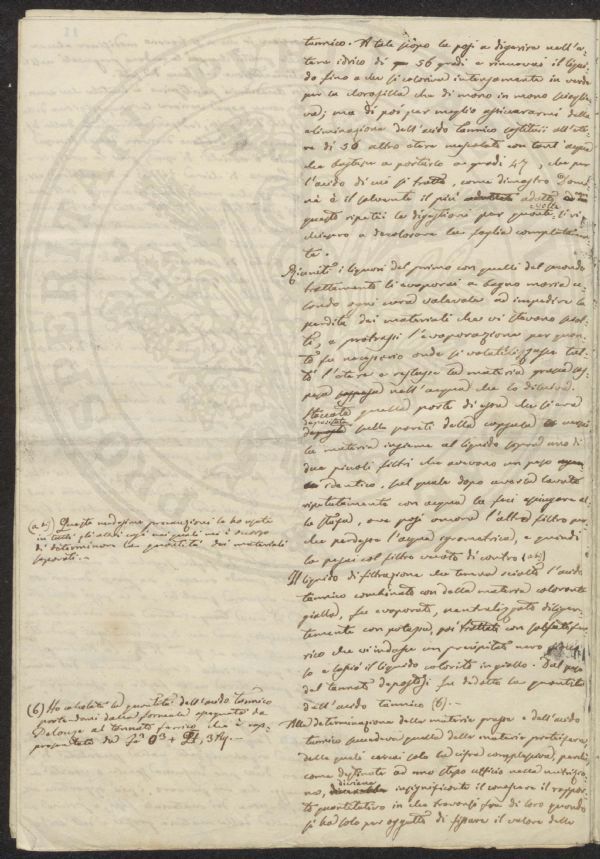 tannico. A tale scopo la posi a digerire nell'e-
tere idrico di 56 gradi e rinnovai il liqui-
do fino a che si colorina intensamente in verde
per la clorofilla che di mano in mano scioglie-
va; ma di poi per meglio assicurarmi della
eliminazione dell'acido tannico sostituii all'ete-
re di 56 altro etere mescolato con tant'acqua
che bastava a portarlo a gradi 47, che per
l'acido di cui si tratta, come dimostrò Domi-
nè è il solvente il più adatto
questo ripetei la digestione per quante volte si ri-
chiesero a decolorare la foglia completamen-
te.
Riuniti i liquori del primo con quelli del secondo
trattamento li evaporai a bagno maria a-
vendo ogni cura valevole ad impedire la
perdita dei materiali che vi stavano sciol-
ti, e protrassi l'evaporazione per quan-
to fu necessario onde si volatilizzasse tut-
to l'etere e restasse la materia grassa sos-
pesa nell'acqua che lo diluiva.
Staccata quella parte di essa che si era
depositata sulle pareti della capsula versai
la materia insieme al liquido sopra uno di
due piccoli filtri che avevano un peso
identico, sul quale dopo averla lavata
ripetutamente con acqua la feci asciugare al-
la stufa, ove posi ancora l'altro filtro per-
chè perdesse l'acqua igrometrica, e quindi
la pesai col filtro vuoto di contro (a b)
Il liquido di filtrazione che teneva sciolto l'acido
tannico combinato con della materia colorante
gialla, fu evaporato, neutralizzato diligen-
temente con potassa, poi trattato con solfato fer-
rico che vi indusse un precipitato nero
so e lasciò il liquido colorito in giallo. Dal peso
del tannato depostosi fu dedotta la quantità
dell'acido tannico (6).-
Alla determinazione della materia grassa e dell'acido
tannico succedeva quella delle materie proteiche,
delle quali cercai solo la cifra complessiva, perchè
come destinate ad uno stesso ufficio nella nutrizio-
ne, diviene insignificante il conoscere il rappor-
to quantitativo in che trovansi fra di loro quando
si ha solo per oggetto di fissare il valore delle
(a b) Questa medesima precauzione la ho usata
in tutti gli altri casi nei quali mi è occorso
di determinare la quantità dei materiali
separati.-
(6) Ho calcolato la quantità dell'acido tannico
partendomi dalla formola assegnata da
Pelouze al tannato ferrico che è rap-
presentata da Fe²O³ + Qt, 3 Aq.-